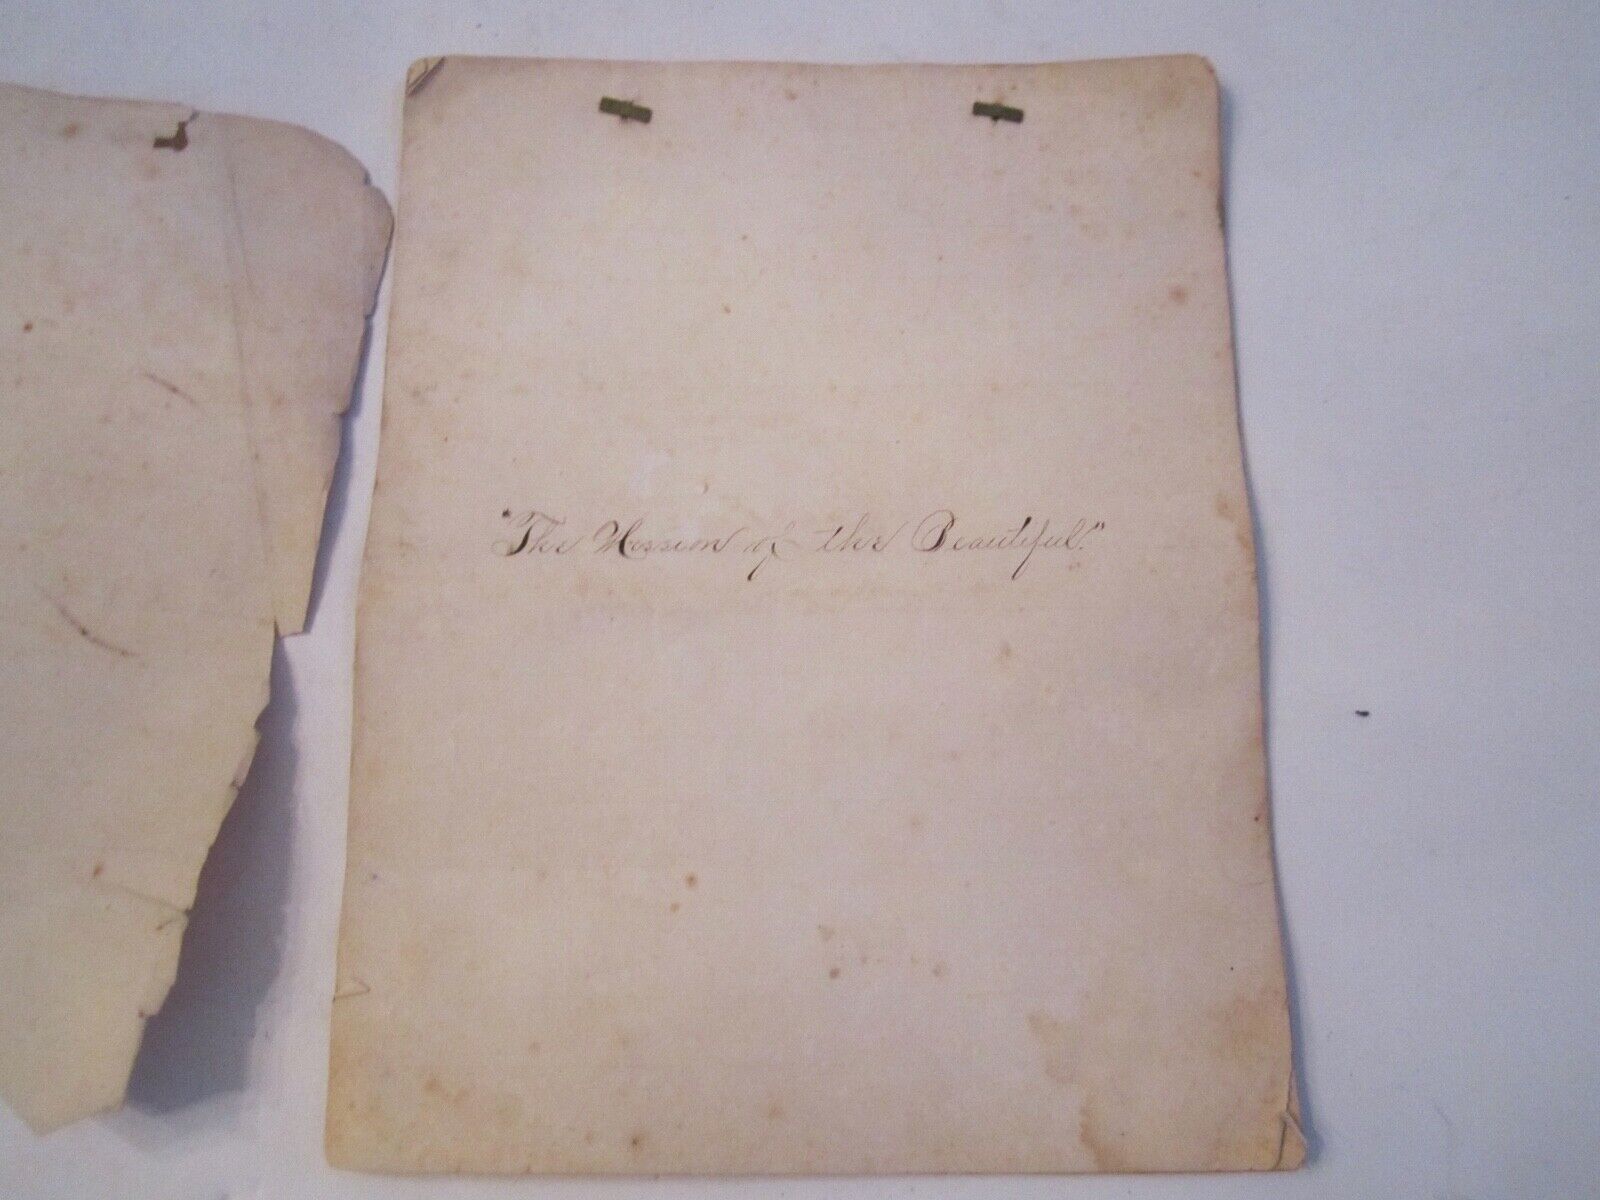 "The Mission of the Beautiful."